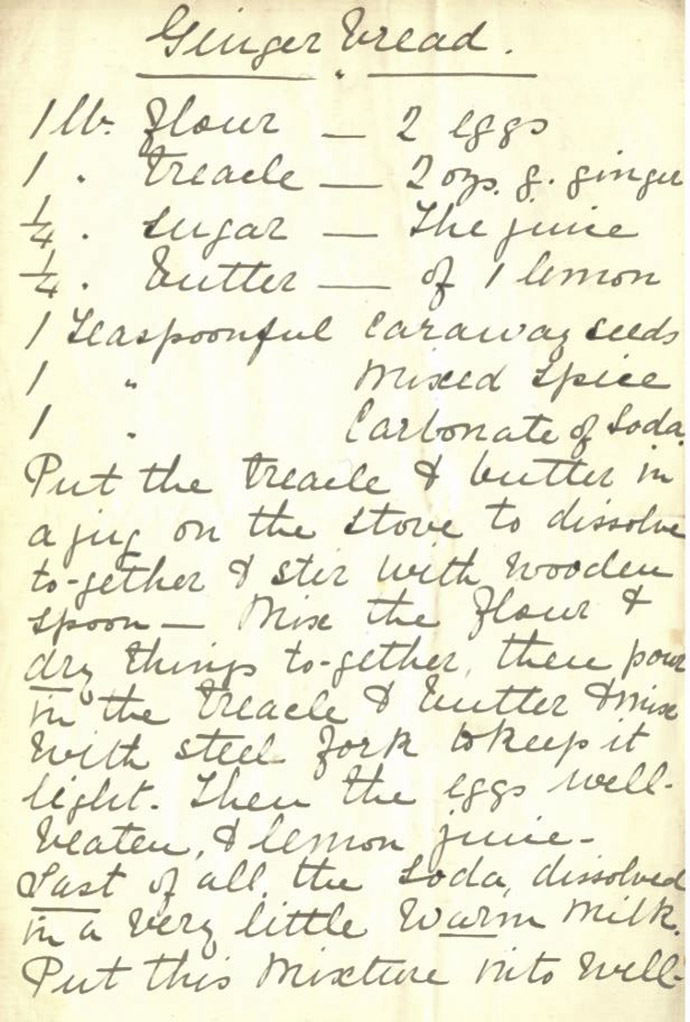 Ginger bread.
1 lb. flour — 2 eggs
1 " treacle — 2 ozs. g. ginger
¼ " sugar — The juice
¼ " butter — of 1 lemon
1 Teaspoonful Caraway seeds
1 " Mixed Spice
1 " Carbonate of Soda.
Put the treacle & butter in
a jug on the stove to dissolve
to-gether & stir with wooden
spoon — Mix the flour &
dry things to-gether, then pour
in the treacle & butter & mix
with steel fork to keep it
light. Then the eggs well-
beaten, & lemon juice -
Last of all, the soda, dissolved
in a very little warm milk.
Put this mixture into well-